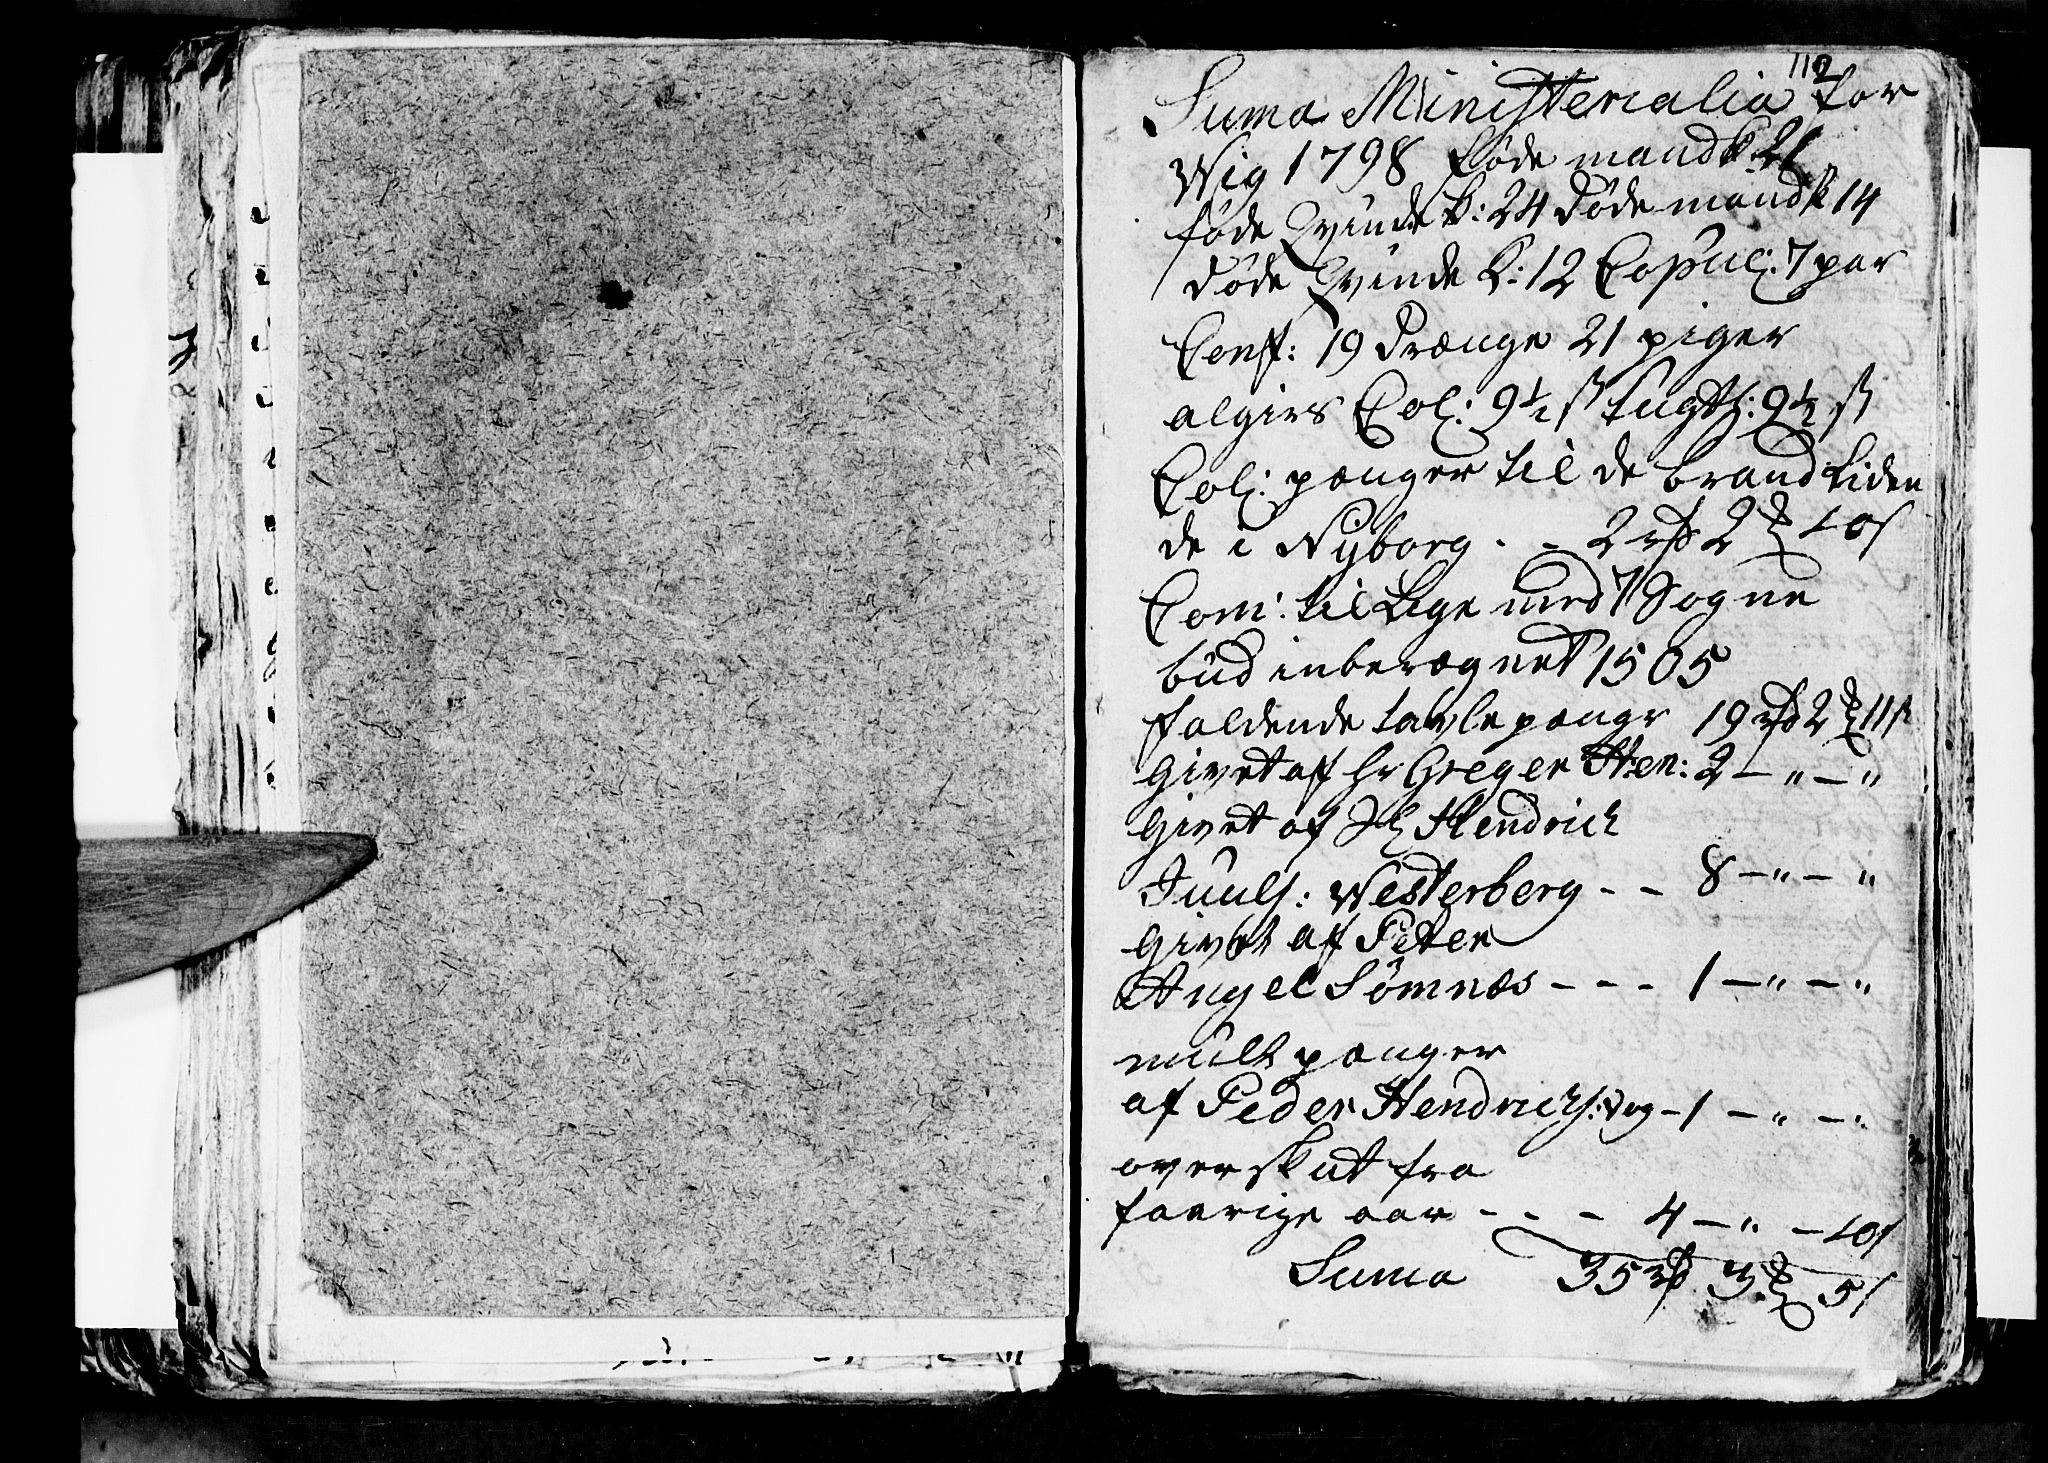 112
Suma Ministerialia for
Wig 1798 føde mandk 21
føde Qvinde k: 24 døde mandk 14
døde Qvinde k: 12 Copul: 7 par
Conf: 19 drænge 21 piger
algirs Col: 9½ s tugth: 9½ s
Col: pænger til de brandliden
de i Nyborg - - 2 rd 2 10 s
Com: tillige med 7 Sogne
bud inberægnet 1505
faldende tavle pænge 19 rd 2 11 s
Givet af hr Greger Hen: 2 - " - "
Givet af Hendrich
Juuls: Westerberg - - 8 - " - "
Givet af Peter
Angel Sømnæs - - - 1 - " - "
mult pænger
af Peder Hendrichs: Vog - 1 - " - "
overskut fra
faarige aar - - - 4 - " - 10 s
Suma 35 rd 3 5 s